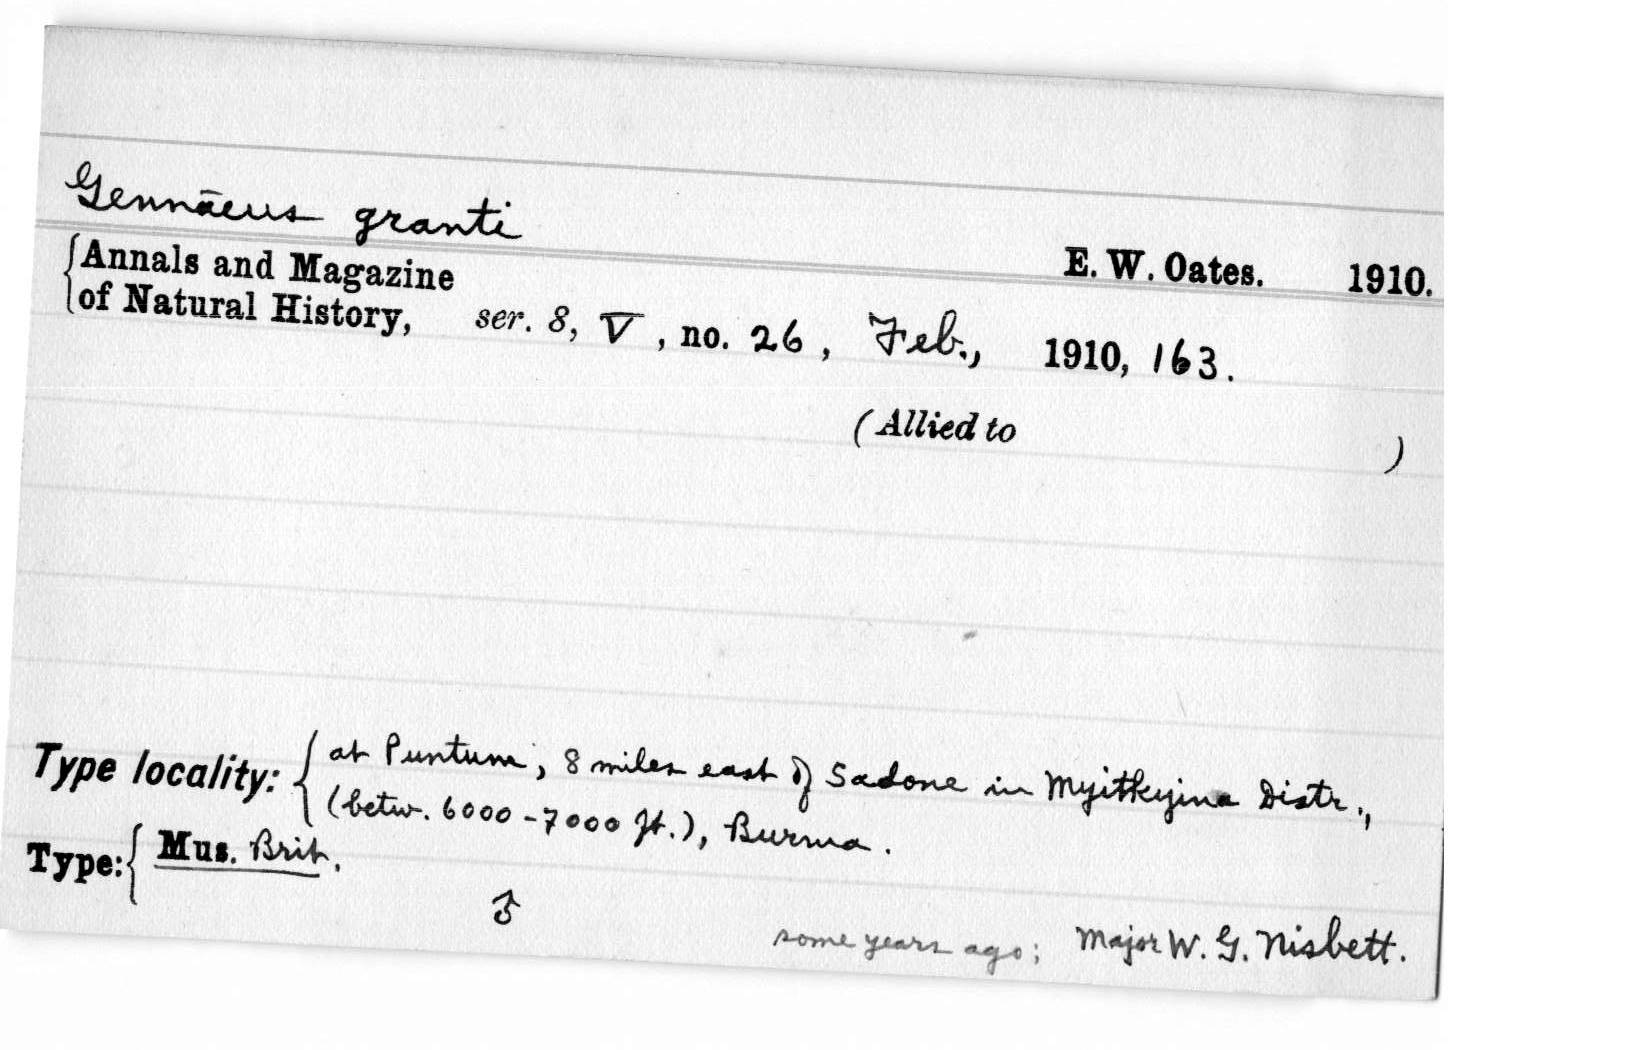 Gennāeus granti
E. W. Oates. 1910.
{Annals and Magazine
of Natural History, ser. 8, V, no. 26, Feb., 1910, 163.
(Allied to )
Type locality: {at Puntum, 8 miles east of Sadone in Myitkyina Distr.,
(betw. 6000-7000 ft.), Burma.
Type: {Mus. Brit.
♂
some years ago; Major W. G. Nisbett.